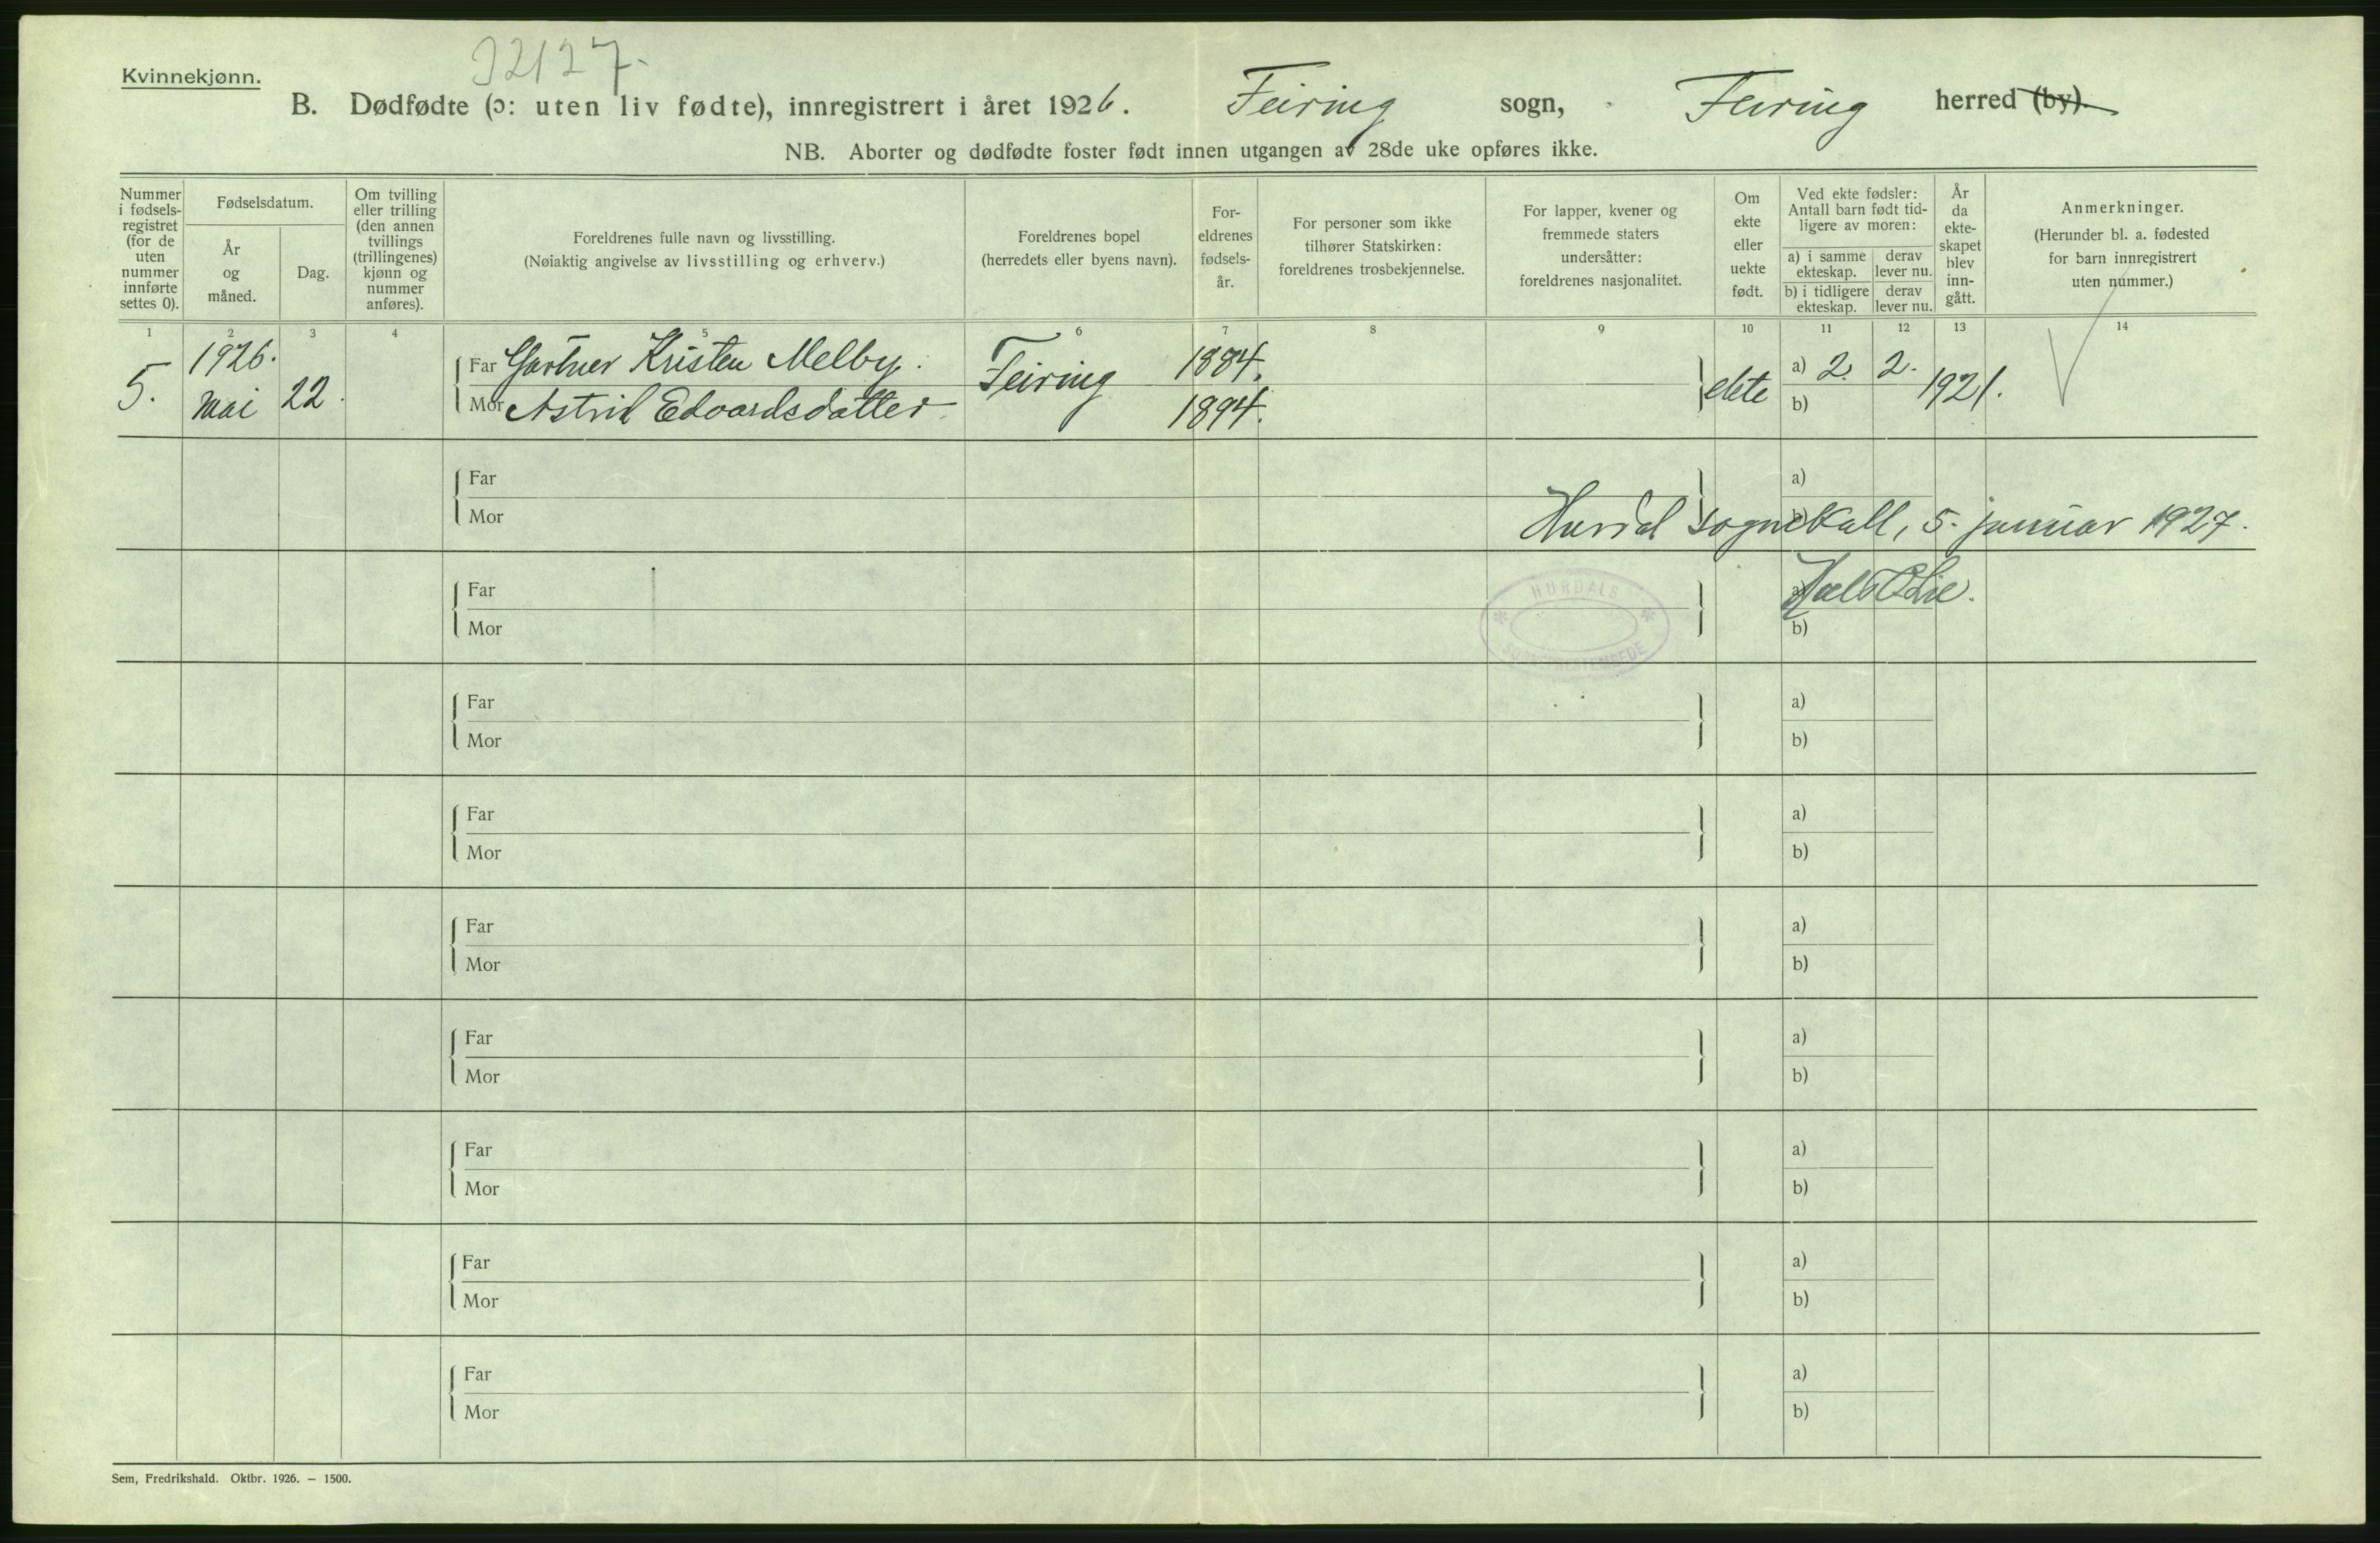 32127.
Kvinnekjønn.
B. Dødfødte (ɔ: uten liv fødte), innregistrert i året 1926. Feiring sogn, Feiring herred (by).
NB. Aborter og dødfødte foster født innen utgangen av 28de uke opføres ikke.
Nummer i fødsels-registret (for de uten nummer innførte settes 0).
Fødselsdatum.
År og måned.
Dag.
Om tvilling eller trilling (den annen tvillings (trillingenes) kjønn og nummer anføres).
Foreldrenes fulle navn og livsstilling.
(Nøiaktig angivelse av livsstilling og erhverv.)
Foreldrenes bopel
(herredets eller byens navn).
For-eldrenes fødsels-år.
For personer som ikke tilhører Statskirken: foreldrenes trosbekjennelse.
For lapper, kvener og fremmede staters undersåtter: foreldrenes nasjonalitet.
Om ekte eller uekte født.
Ved ekte fødsler: Antall barn født tid-ligere av moren:
a) i samme ekteskap. derav lever nu.
b) i tidligere ekteskap. derav lever nu.
År da ekte-skapet blev inn-gått.
Anmerkninger.
(Herunder bl. a. fødested for barn innregistrert uten nummer.)
1 2 3 4 5 6 7 8 9 10 11 12 13 14
5. 1926. mai 22. Far Gartner Kristen Melby. Feiring 1884. ekte a) 2. 2. 1921.
Mor Astrid Edvardsdatter 1894. b)
Far a)
Mor b)
Hurdal sognekall, 5. januar 1927.
Far a)
Mor b)
HURDALS
Far a)
Mor b)
Far a)
Mor b)
Far a)
Mor b)
Far a)
Mor b)
Far a)
Mor b)
Far a)
Mor b)
Far a)
Mor b)
Sem, Fredrikshald. Oktbr. 1926. – 1500.